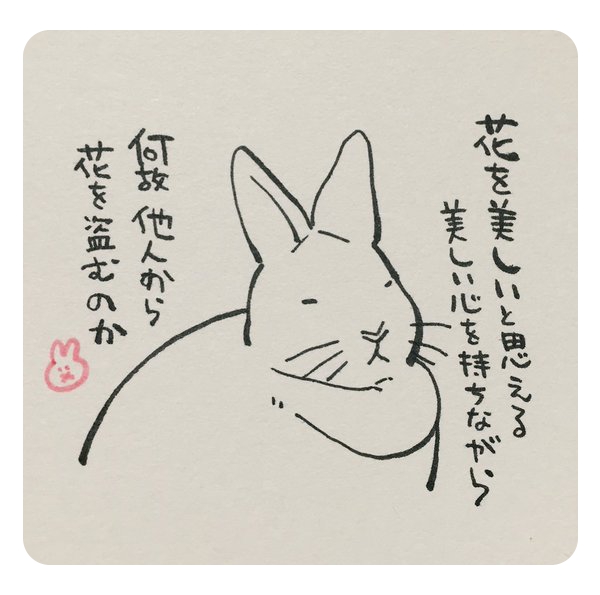 花を美しいと思える
美しい心を持ちながら
何故 他人から
花を盗むのか